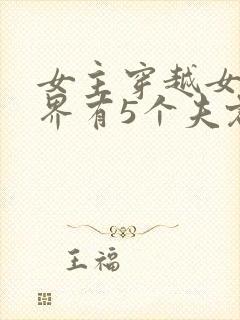 女主穿越女
界有5个夫
王福